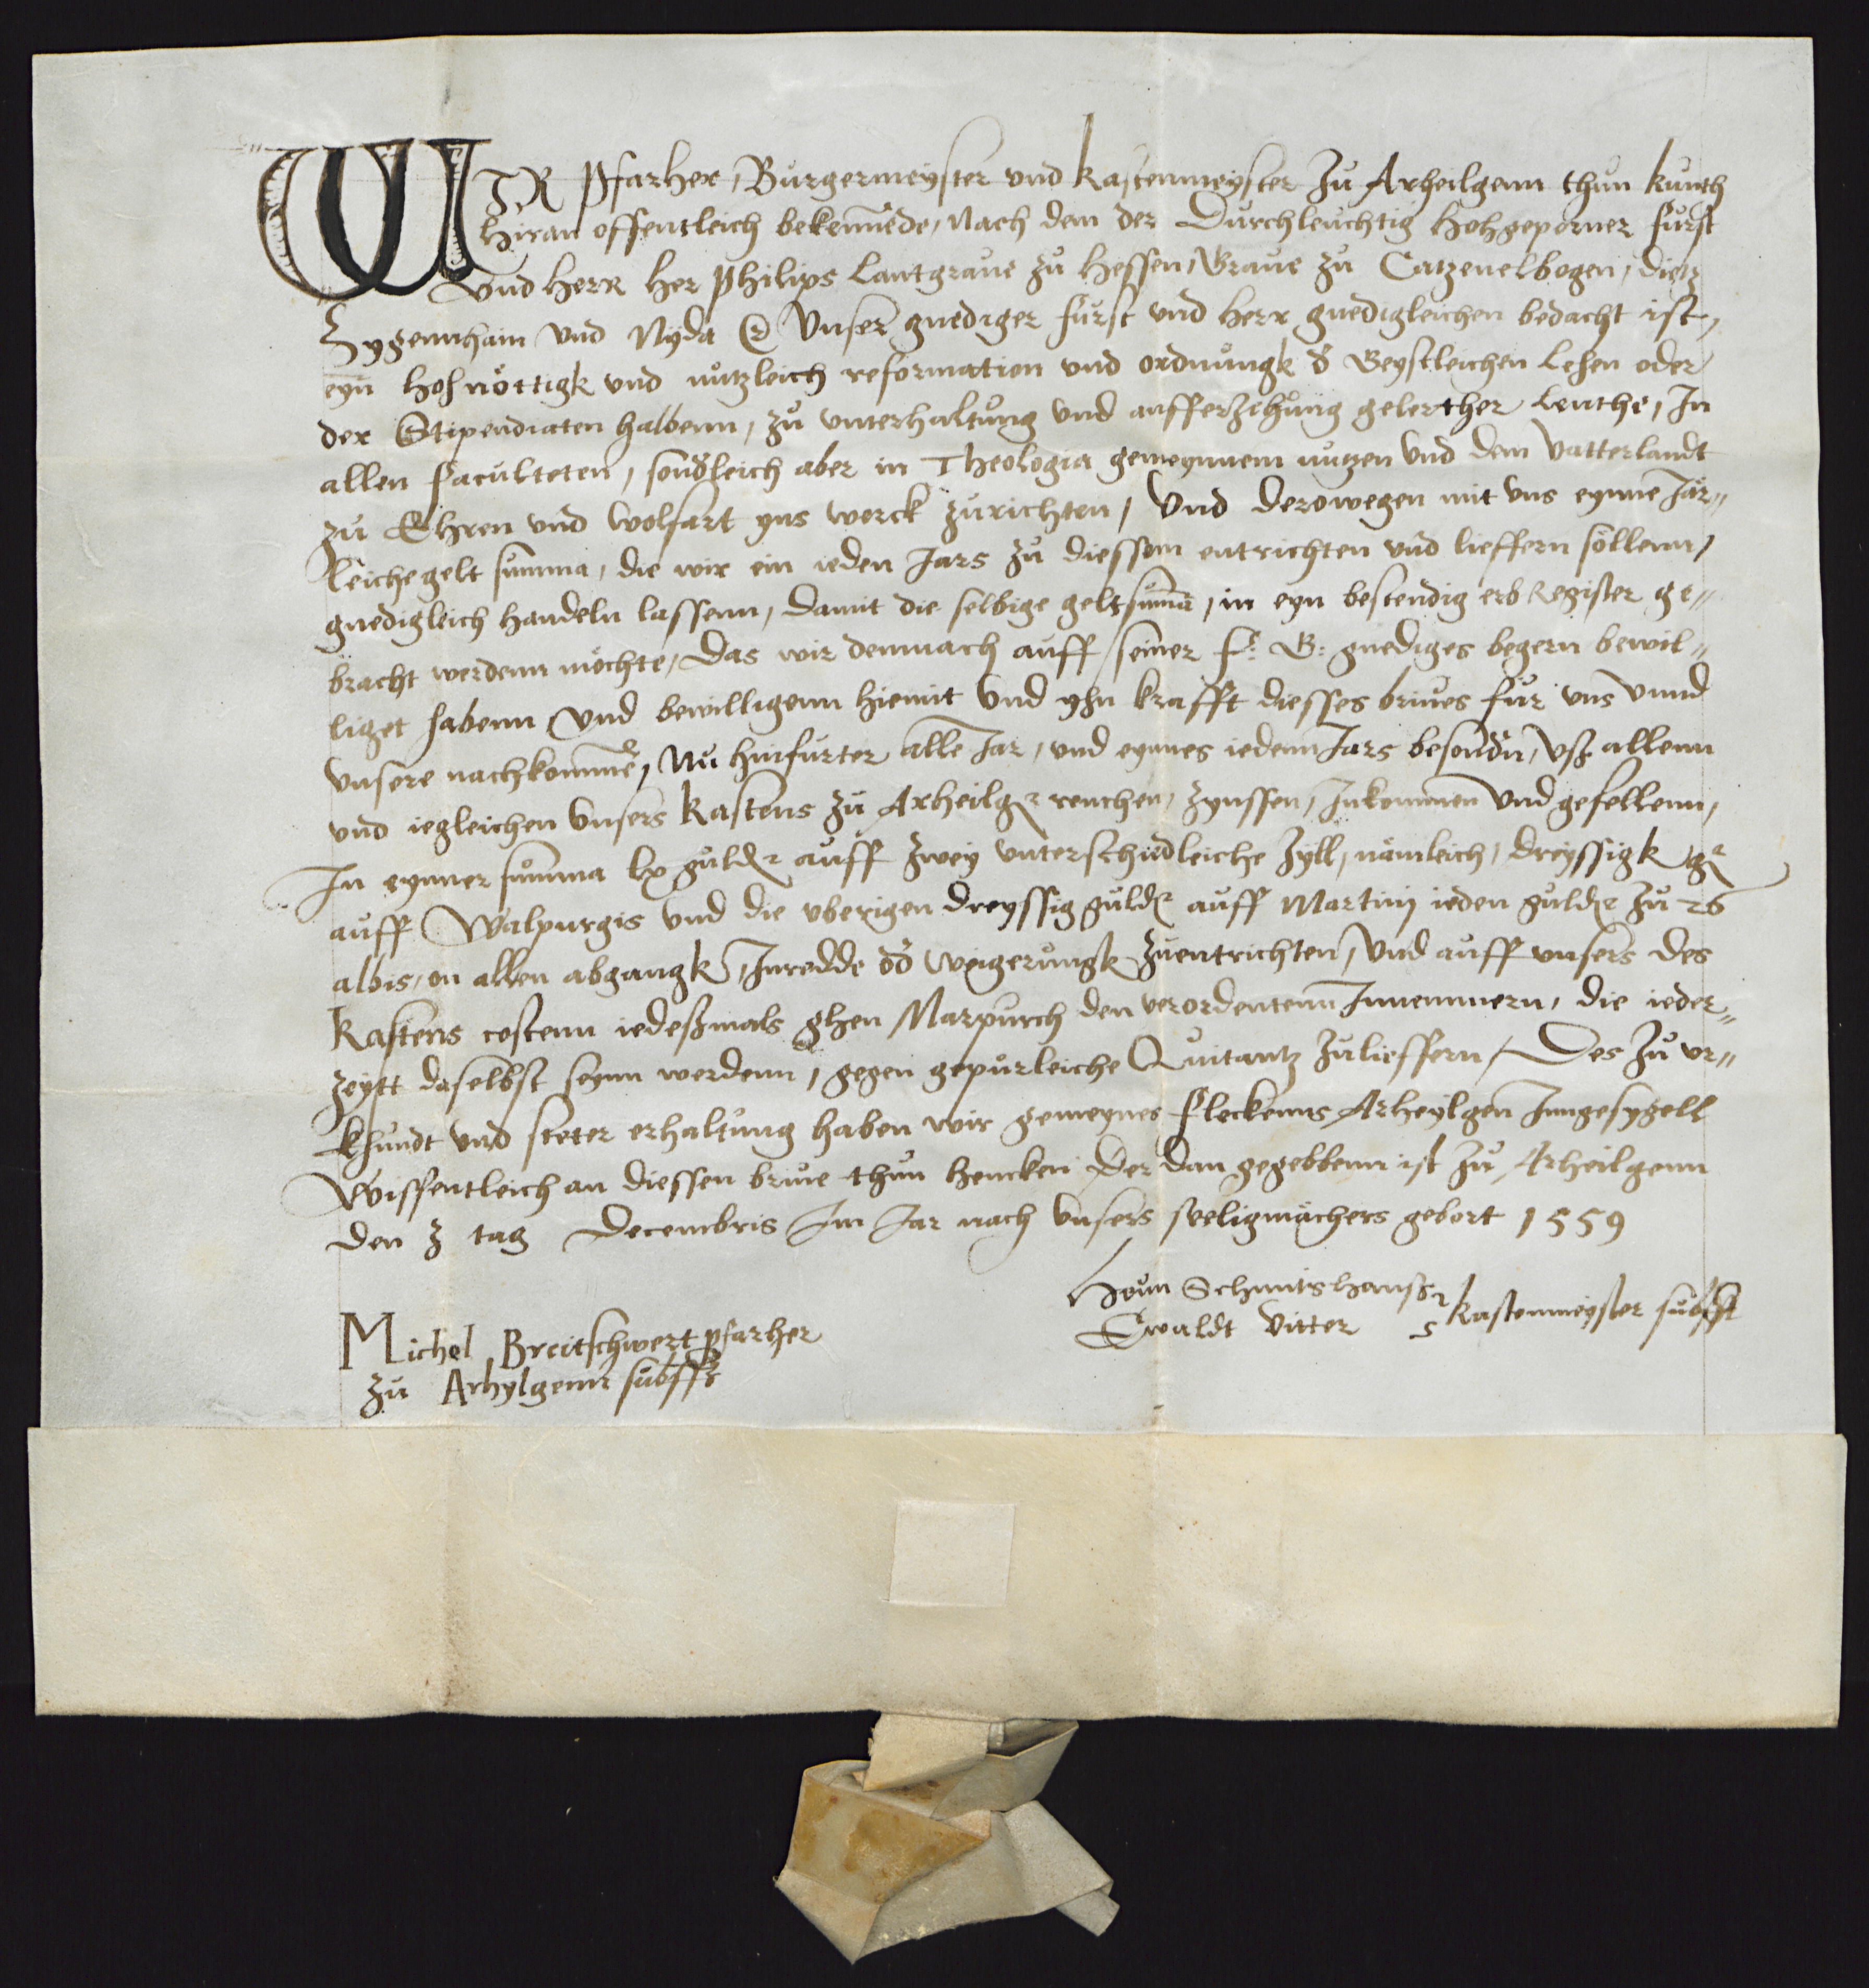 WIR Pfarher, Burgermeyster und Kastenmeyster zu Arheilgenn thun kunth
hiran offentleich bekennēde, Nach dem der Durchleuchtig Hohgeporner Furst
und Herr Her Philips Lantgraue zu Hessen, Graue zu Catzenelbogen, Dietz
Zygennhain und Nyda &c Unser gnediger Furst und Herr gnedigleichen bedacht ist,
eyn hohnöttigk und nutzleich reformation und ordnungk d' Geystleichen Lehen oder
der Stipendiaten halbenn, zu unterhaltung und aufferzihung gelerther Leuthe, In
allen Faculteten, sond'leich aber in Theologia gemeynnem nutzen und dem Vatterlandt
zu Ehren und wolfart yns werck zurichten, Und derowegen mit uns eynne Jär„
leiche gelt summa, die wir ein ieden Jars zu diessem entrichten und lieffern söllenn,
gnedigleich handeln lassenn, damit die selbige geltsumā, in eyn bestendig erb Register ge„
bracht werdenn möchte, Das wir demnach auff seiner F: G: gnediges begern bewil„
liget habenn und bewilligenn hiemit und yhn krafft diesses briues für uns unnd
unsere nachkommē, Nu hinfurter alle Jar, und eynnes iedenn Jars besond'n, uß allenn
und iegleichen unsers Kastens zu Arheilgen renthen, zynssen, Inkommen und gefellenn,
In eynner summa lx gulden auff zwey unterschidleiche zyll, nämleich, dreyssigk gl
auff Walpurgis und die uberigen dreyssig gulden auff Martinj ieden gulden zu 26
albis, on allen abgangk, Inredde od' weigerungk zuentrichten, und auff unsers des
Kastens costenn iedeßmals ghen Marpurch den verordentenn Innemmern, die ieder„
zeytt daselbst seynn werdenn, gegen gepurleiche Quitantz zulieffern, Des zu ur„
khundt und steter erhaltung haben wir gemeynes Fleckenns Arheylgen Inngesygell
wissentleich an diessen briue thun hencken Der dan gegebbenn ist zu Arheilgenn
den 3 tag Decembris Im Jar nach unsers seeligmächers gebort 1559
Henn Schmits hanß
Ewaldt Vitter
Kastenmeyster subsst
Michel Breitschwert pfarher
zu Arhylgenn subsst